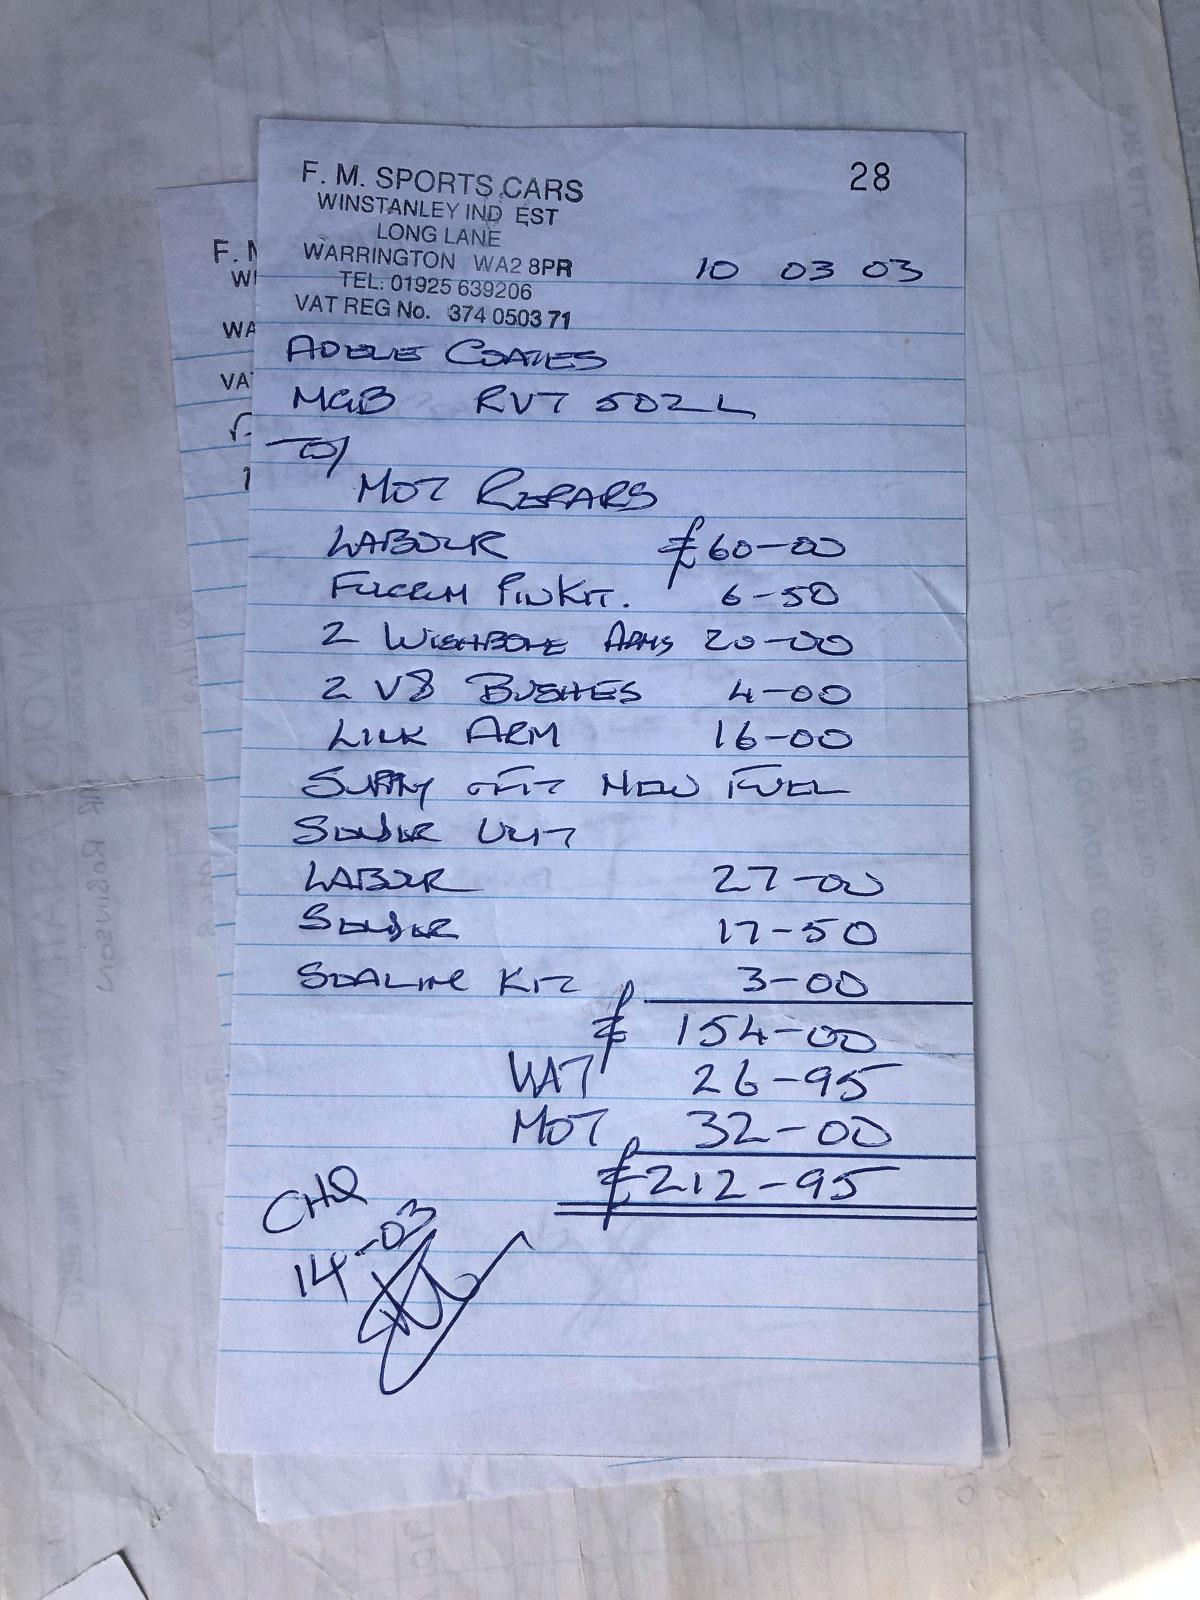 F. M. SPORTS CARS
28
WINSTANLEY IND EST
LONG LANE
WARRINGTON WA2 8PR
10 03 03
TEL: 01925 639206
VAT REG No. 374 0503 71
ADELE COATES
MGB RVT 502L
TO/
MOT REPARS
LABOUR £60-00
FULCRUM PIN KIT. 6-50
2 WISHBONE ARMS 20-00
2 V8 BUSHES 4-00
LINK ARM 16-00
SUPPLY & FIT NEW FUEL
SENDER UNIT
LABOUR 27-00
SENDER 17-50
SEALING KIT 3-00
£ 154-00
VAT 26-95
MOT 32-00
£212-95
CHQ
14-03
F. M
WI
WA
VA
ROBINSON